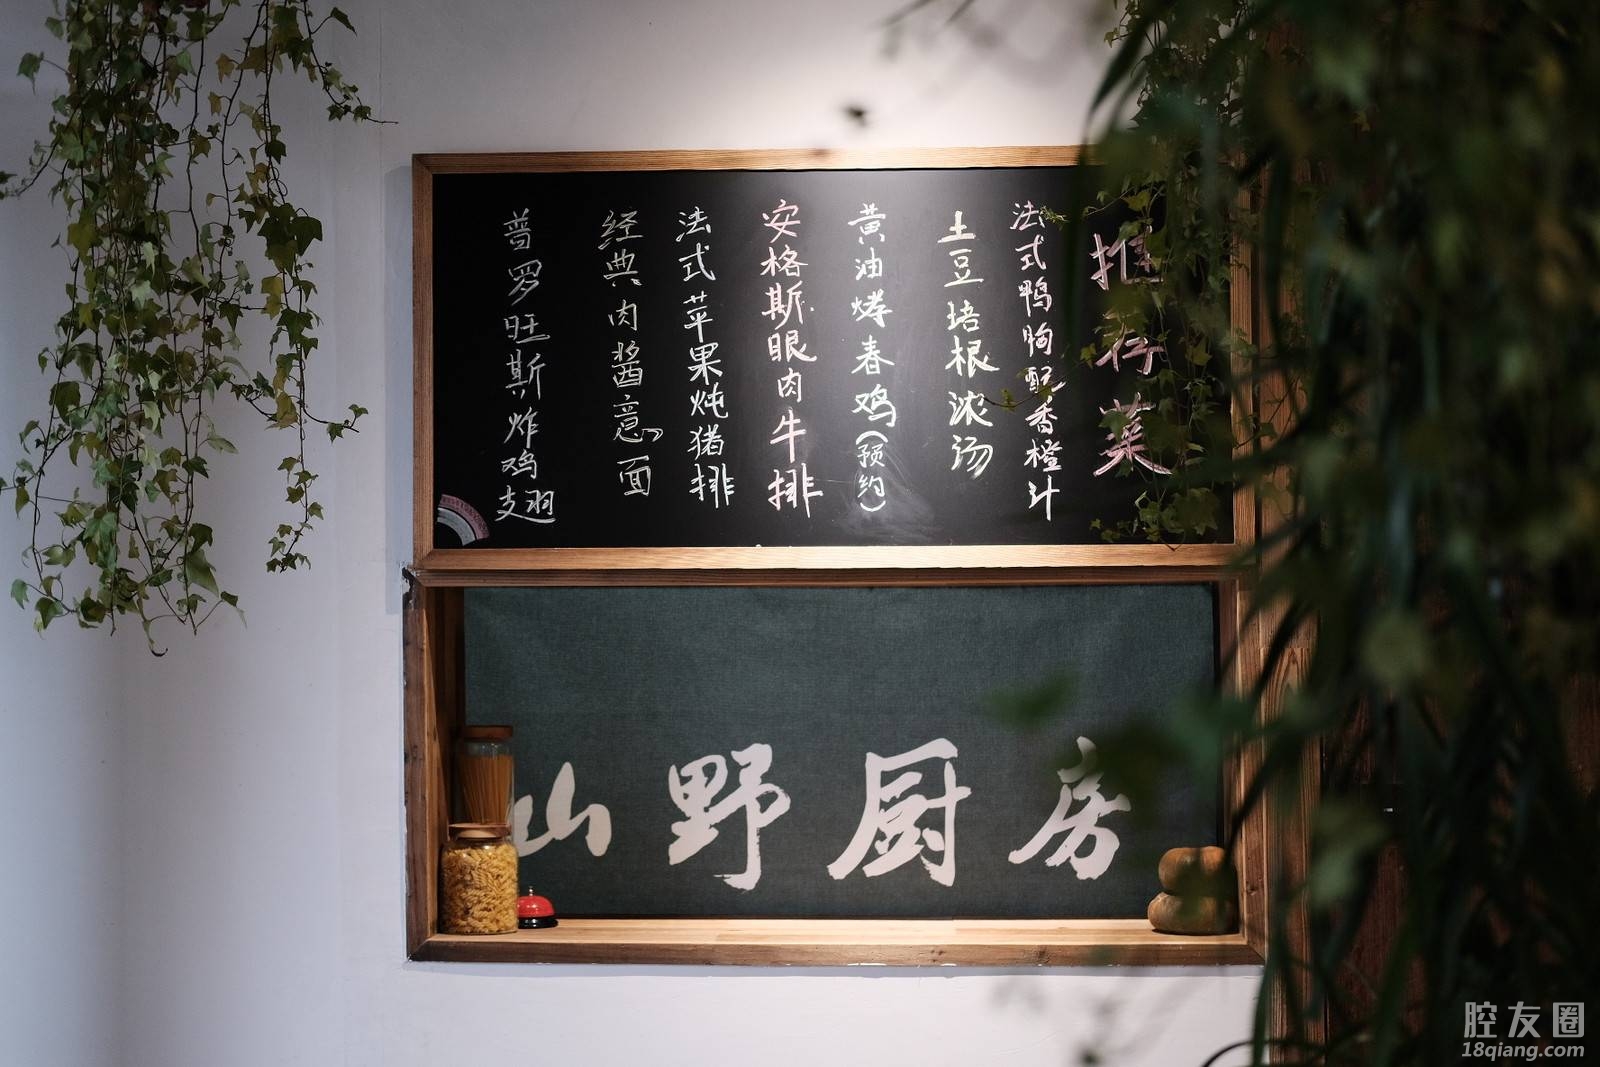 推荐菜
法式鸭胸配香橙汁
土豆培根浓汤
黄油烤春鸡(预约)
安格斯眼肉牛排
法式苹果炖猪排
经典肉酱意面
普罗旺斯炸鸡翅
山野厨房
腔友圈
18qiang.com